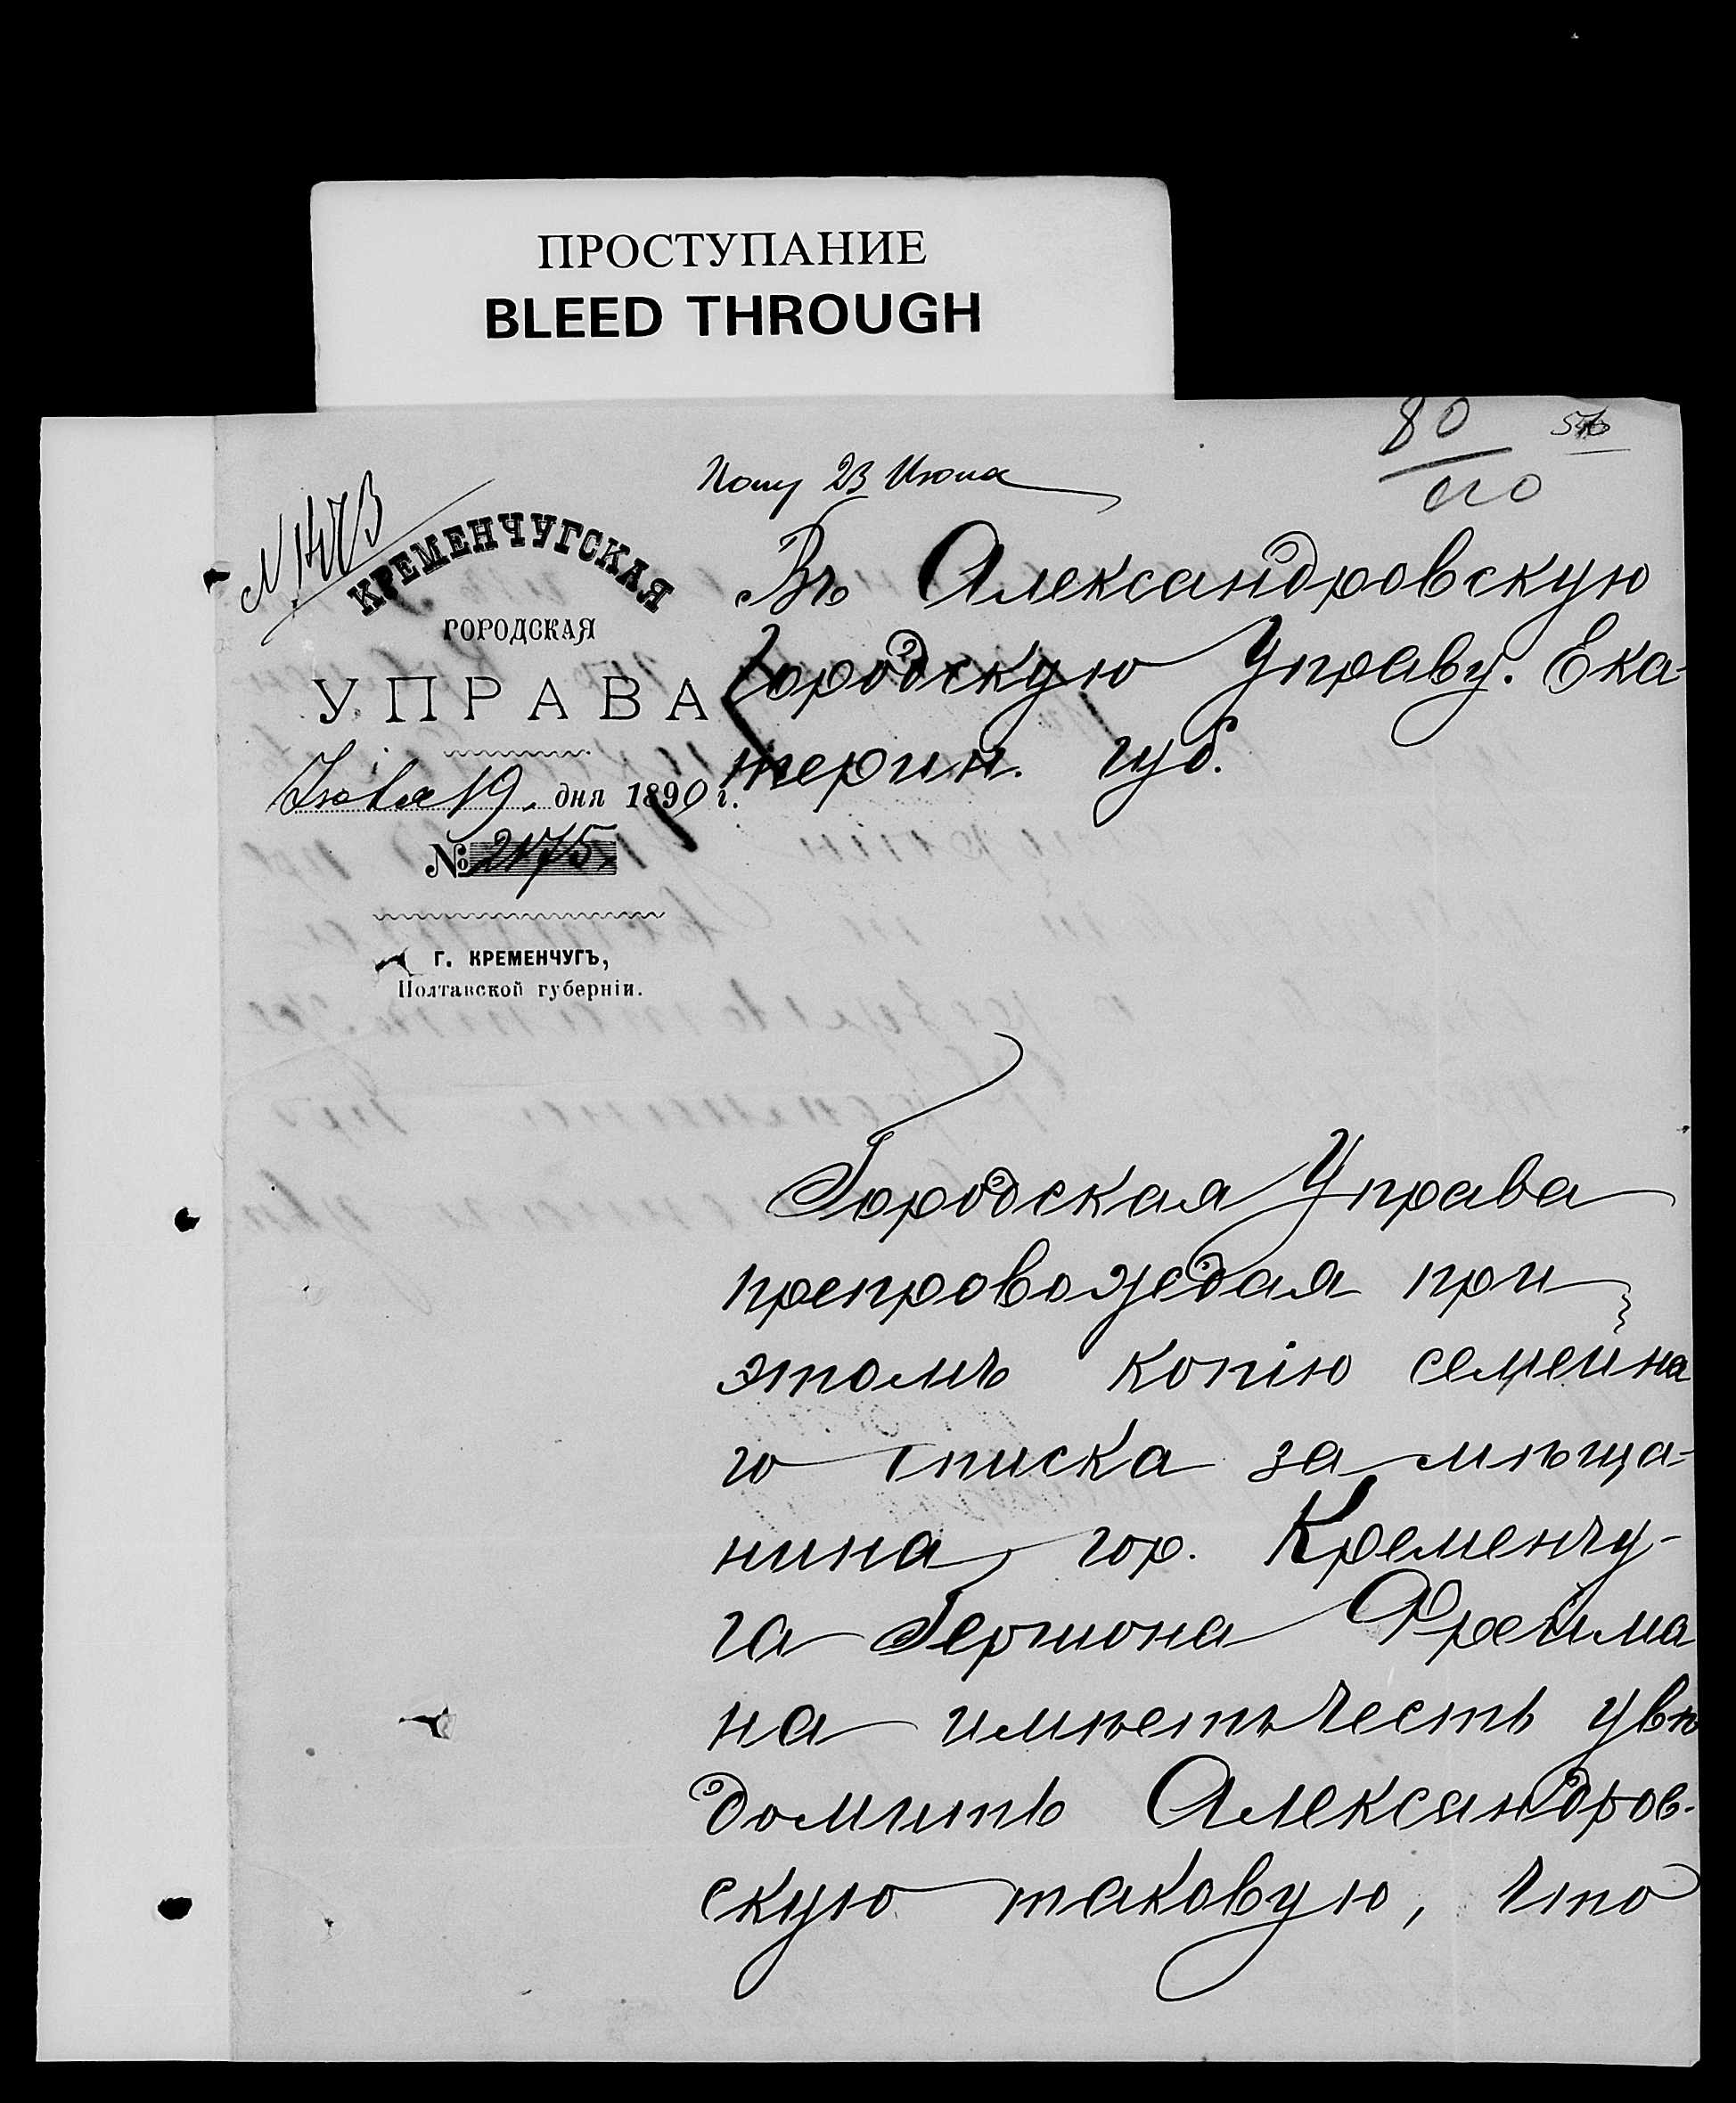 ПРОСТУПАНИЕ
BLEED THROUGH
80
Полу 23 Июня
КРЕМЕНЧУГСКАЯ
ГОРОДСКАЯ
УПРАВА
19 дня 1890 г.
№ 2175
Г. КРЕМЕНЧУГЪ,
Полтавской губерніи.
Въ Александровскую
Городскую Управу. Ека-
терин. губ.
Городская Управа
препровождая при
этомъ копію семейна
го списка за мѣща-
нина гор. Кременчу-
га Гершона Фрейма
на имѣетъ честь увѣ
домить Александров-
скую таковую, что